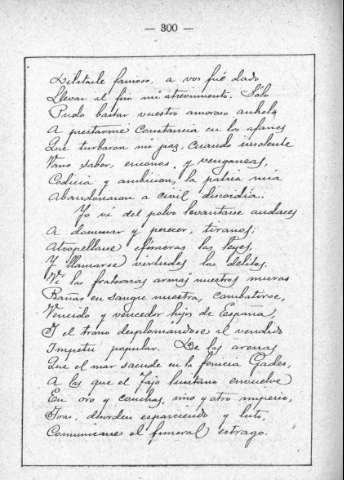 — 300 —
Delitaile famoso, a vos fué dado
Llevar al fin mi atrevimiento. Sólo
Pudo bastar vuestro amoroso anhelo
A prestarme constancia en los afanes
Que turbaron mi paz, cuando insolente
Vano saber, enconos, y venganzas,
Codicia y ambicion, la patria mía
Abandonaron a civil discordia.
Yo vi del polvo levantarse audaces
A dominar y perecer, tiranos;
Atropellarse efímeras las leyes,
Y llamarse virtudes los delitos,
Vi las fraternas armas nuestros muros
Bañar en sangre nuestra, combatirse,
Vencido y vencedor hijos de España,
Y el trono desplomandose al vendido
Impetu popular. De las arenas
Que el mar sacude en la fenicia Gades,
A las que el Tajo lusitano envuelve
En oro y conchas, uno y otro imperio,
Iras, desorden esparciendo y luto,
Comunicarse el funeral estrago.